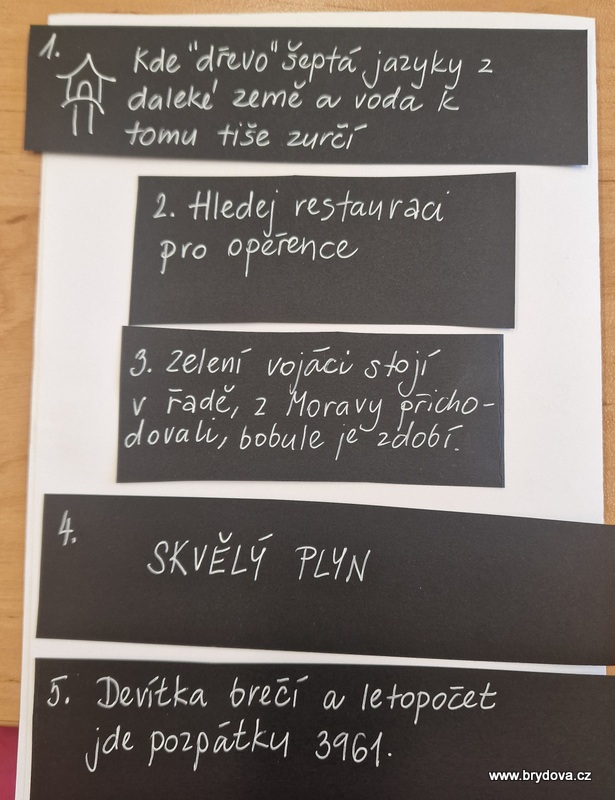 1. Kde "dřevo" šeptá jazyky z
daleké země a voda k
tomu tiše zurčí
2. Hledej restauraci
pro opeřence
3. Zelení vojáci stojí
v řadě, z Moravy přicho-
dovali, bobule je zdobí.
4. SKVĚLÝ PLYN
5. Devítka brečí a letopočet
jde pozpátku 3961.
www.brydova.cz